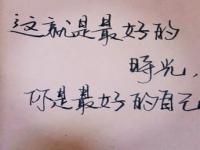 这就是最好的
時光,
你是最好的自己